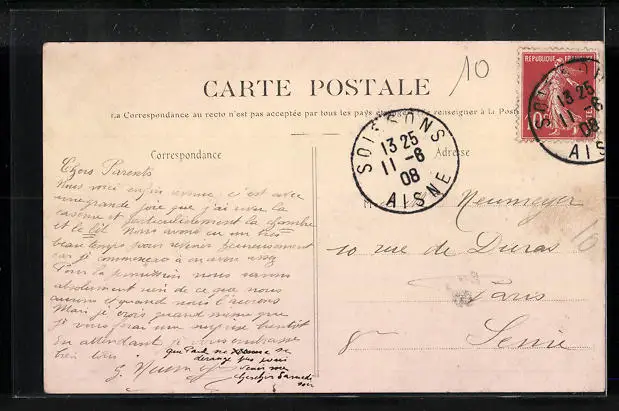 10
CARTE POSTALE
La Correspondance au recto n'est pas acceptée par tous les pays étrangers (Se renseigner à la Poste
REPUBLIQUE FRANÇAISE
10
SOISSONS
13 25
11 -6
08
AISNE
SOISSONS
13 25
11 -6
08
AISNE
Correspondance
Adresse
Chers Parents
Nous voici enfin revenu, c'est avec
une grande joie que j'ai revu la
caserne et particulièrement la chambre
et le lit. Nous avons eu un très
beau temps pour revenir heureusement
car je commençais à en avoir assez
Pour la permission nous savons
absolument rien de ce que nous
aurons et quand nous l'aurons
Mais je crois quand même que
je vous ferai une surprise bientôt
En attendant je vous embrasse
bien tous
que Paul ne se
dérange pas pour
venir me
chercher Samedi
soir
Neumeyer
10 rue de Duras
Paris
8e Seine
10